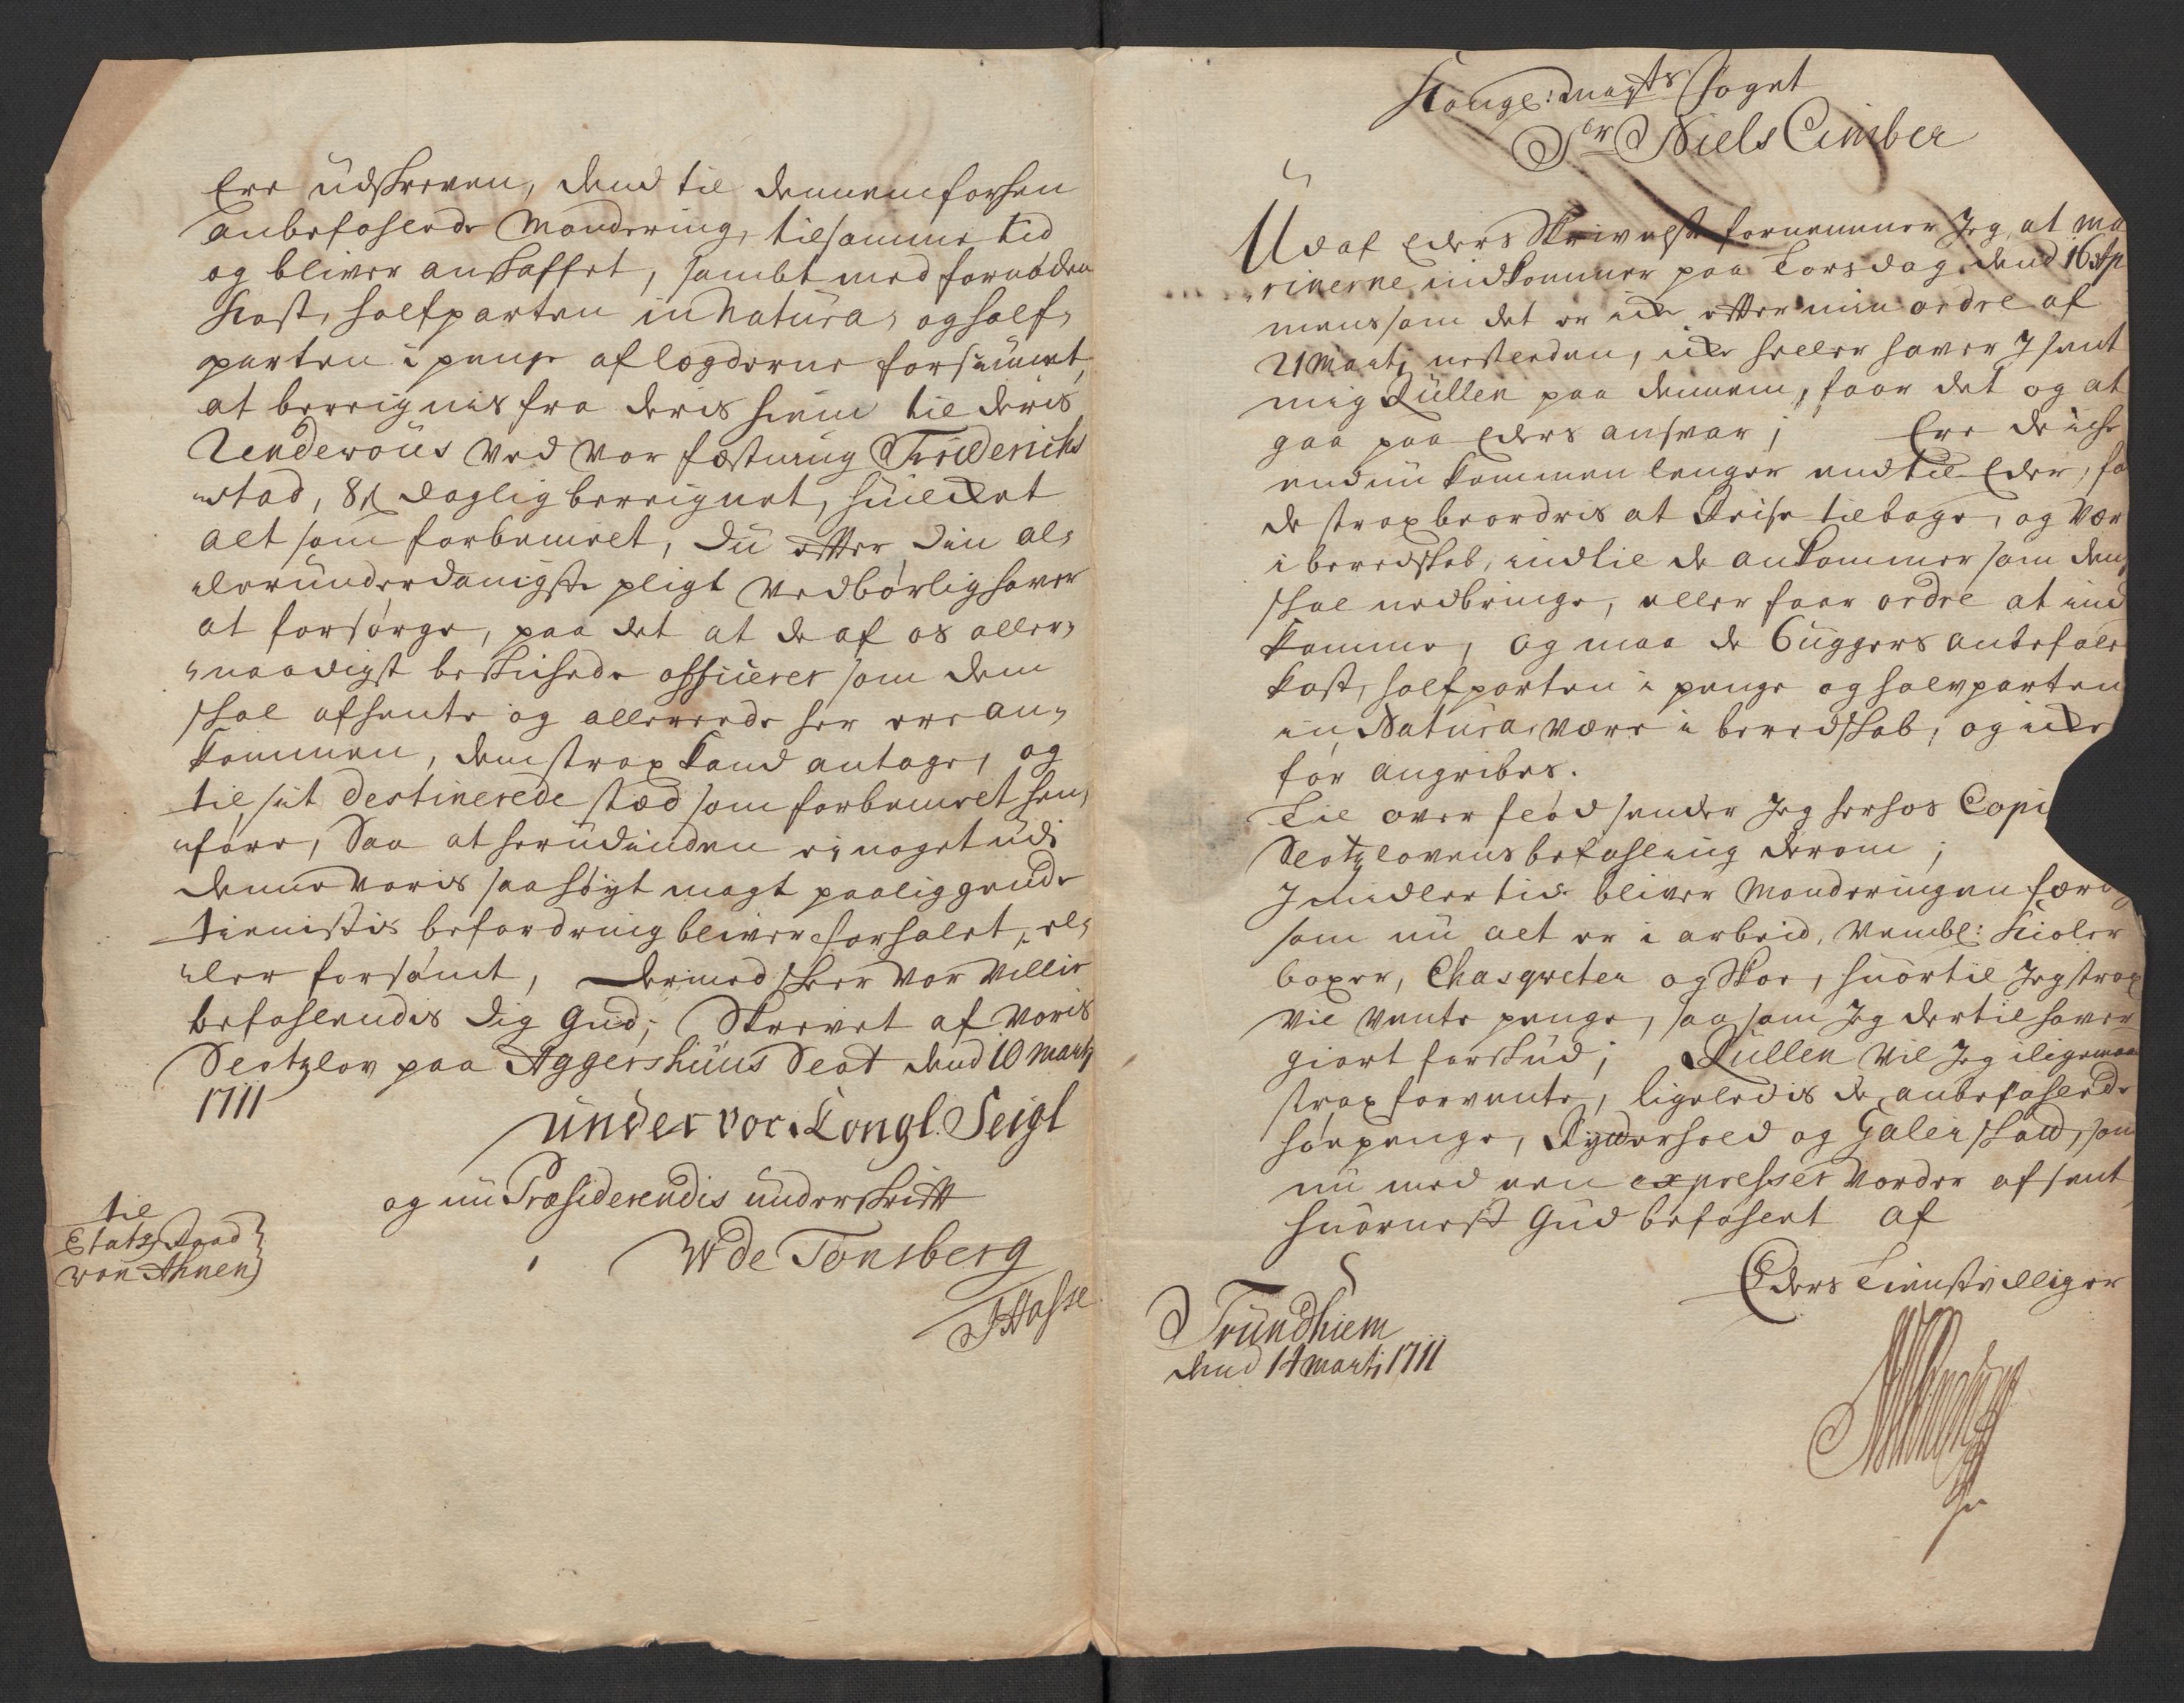 Ere udskreven, dend til dennem forhen
anbefahlede Mondering, tilsamme tid
og bliver anskaffet, sambt med fornøden
Kost, halfparten in Natura, og half-
parten i penge af lægderne forsiunet,
at bereignis fra deris hiem til deris
Rendevous ved vor fæstning Friderich-
stad, 8 s daglig bereignet, huilcket
alt som forbemelt, du efter din al-
lerunderdanigste pligt vedbørlig haver
at forsørge, paa det at de af os aller-
naadigst beskichede officerer som dem
skal afhente og allerrede her ere an-
kommen, dem strax kand antage, og
til sit destinerede stæd som forbemelt hen-
føre, Saa at herudinden ej noget udi
denne voris saa høyt magt paaliggende
tienistis befordring bliver forhalet, el-
ler forsømt, dermed skeer vor villie
befahlendis dig Gud; Skrevet af voris
Slotzlov paa Aggershuus Slot dend 10 Martj
1711
under vor Kongl. Seigl
og nu Præsiderendis underskrift
W de Tonsberg
til
Etatz Raad
von Ahnen
Kongl: Maÿts foget
Sr Niels Cimber
Udaf Eders Skrivelse fornemmer Jeg, at ma
rinerne indkommer paa Torsdag dend 16 Ap
mens som det er icke efter min ordre af
21 Martj nestleden, icke heller haver I sent
mig Rullen paa dennem, faar det og at
gaa paa Eders ansvar; Ere de iche
endnu kommen lenger end til Eder, fa
de strax beordris at Reise tilbage, og vær
i beredskab, indtil de ankommer som dem
skal nedbringe, eller faar ordre at ind
komme, og maa de 6 uggers anbefalt
kost, halfparten i penge og halvparten
in Natura være i beredskab, og icke
før angribes.
Til overflød sender Jeg herhos Copi
Slotzlovens befahling derom;
Imidlertid bliver Monderingen færi
som nu alt er i arbeid, Nembl: Kioler
boxer, Chasqveter og Skoe, huortil Jeg strax
vil vente penge, saasom Jeg dertil haver
giort forskud; Rullen vil Jeg iligemaa
strax forvente, ligeledis de anbefahlede
høepenge, Rytterhold og Galei skatt, som
nu med een expresser vorder afsent
huornest Gud befahlent af
Eders Tienstvilliger
Trundhiem
dend 14 Martj 1711